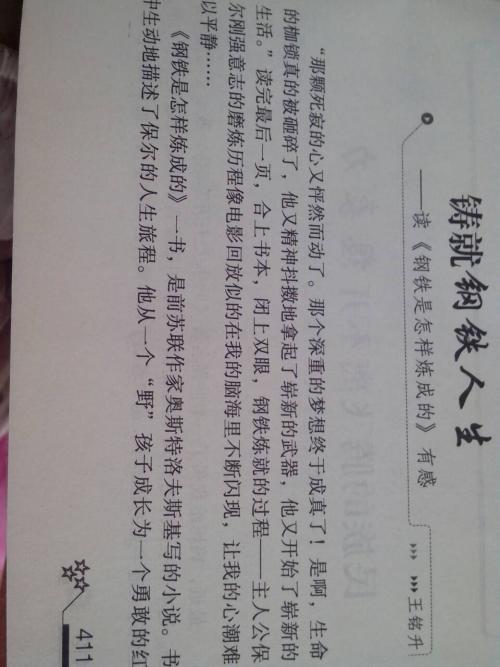 铸就钢铁人生
——读《钢铁是怎样炼成的》有感
王铭升
“那颗死寂的心又怦然而动了。那个深重的梦想终于成真了！是啊，生命
的枷锁真的被砸碎了，他又精神抖擞地拿起了崭新的武器，他又开始了崭新的
生活。”读完最后一页，合上书本，闭上双眼，钢铁炼就的过程——主人公保
尔刚强意志的磨炼历程像电影回放似的在我的脑海里不断闪现，让我的心潮难
以平静……
《钢铁是怎样炼成的》一书，是前苏联作家奥斯特洛夫斯基写的小说。书
中生动地描述了保尔的人生旅程。他从一个“野”孩子成长为一个勇敢的红
411